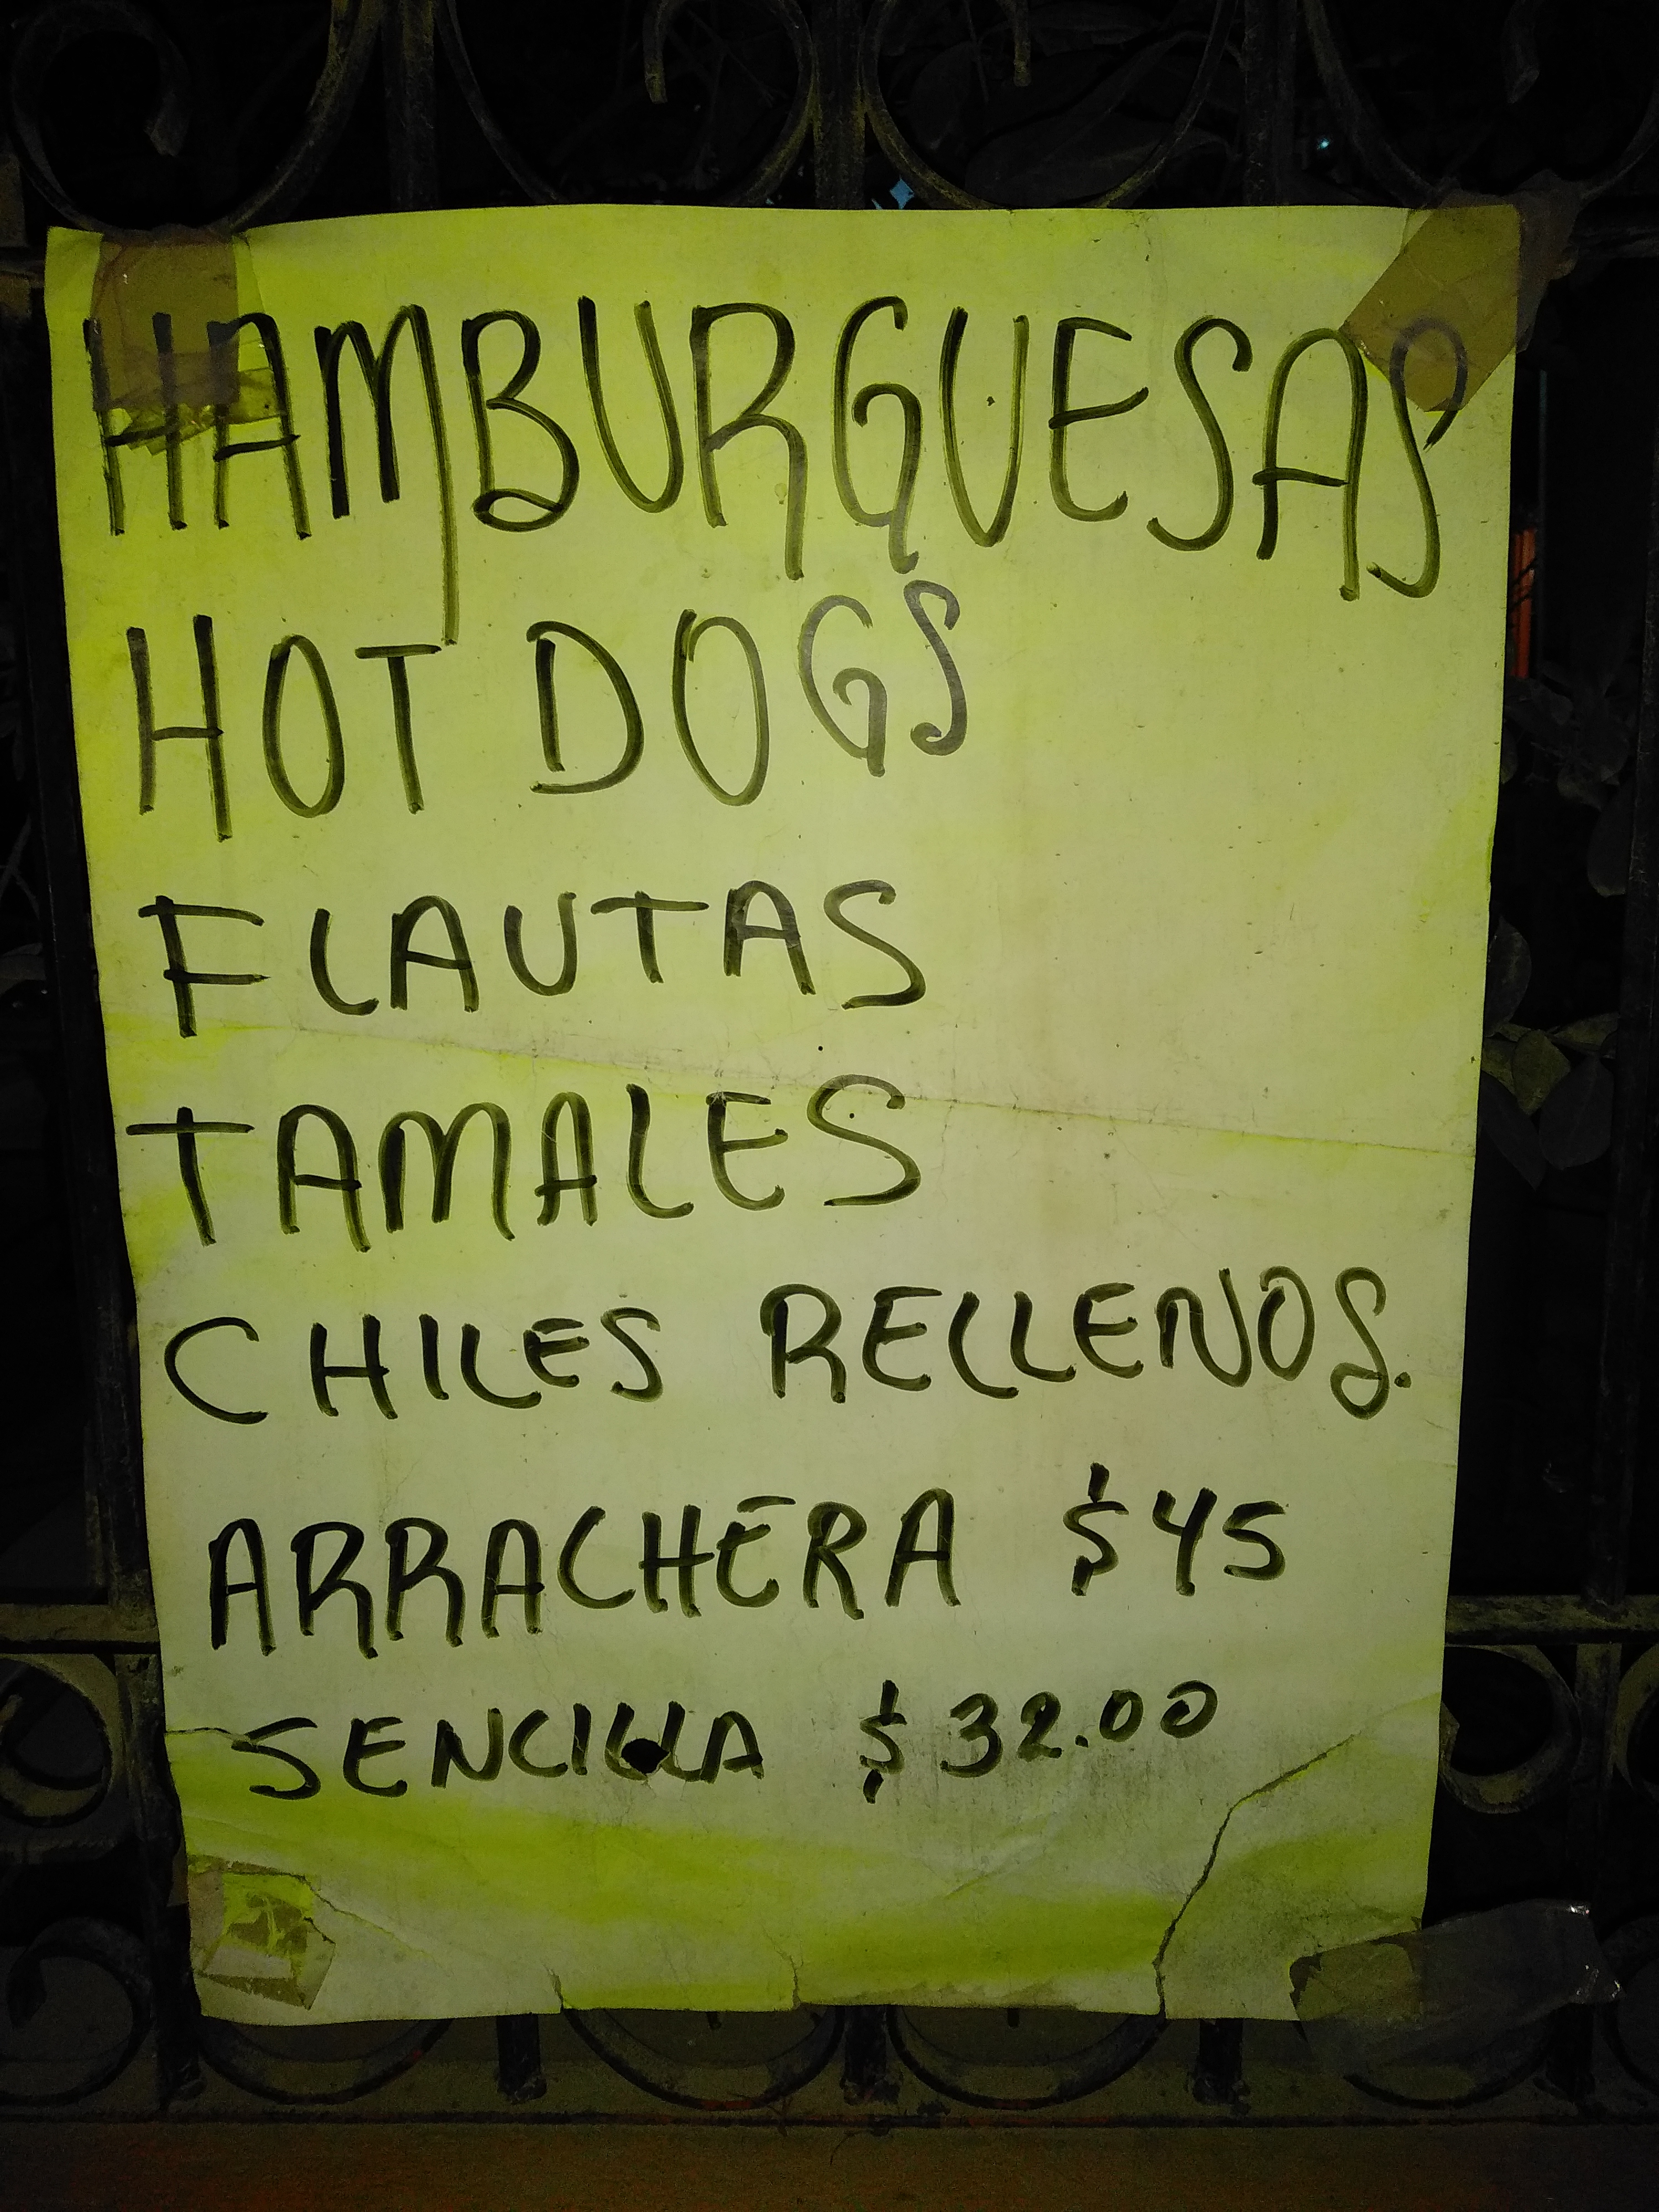 HAMBURGUESAS
HOT DOGS
FLAUTAS
TAMALES
CHILES RELLENOS.
ARRACHERA $45
SENCILLA $32.00